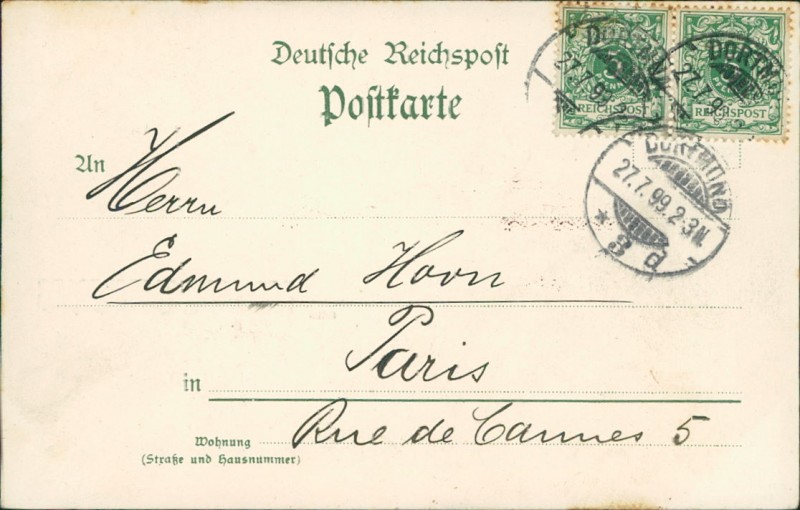 Deutsche Reichspost
Postkarte
DORTMUND
27.7.99
REICHSPOST
DORTMUND
27.7.99
REICHSPOST
DORTMUND
27.7.99. 2-3N.
* 3 d
An Herrn
Edmund Horn
in Paris
Wohnung Rue de Cannes 5
(Straße und Hausnummer)